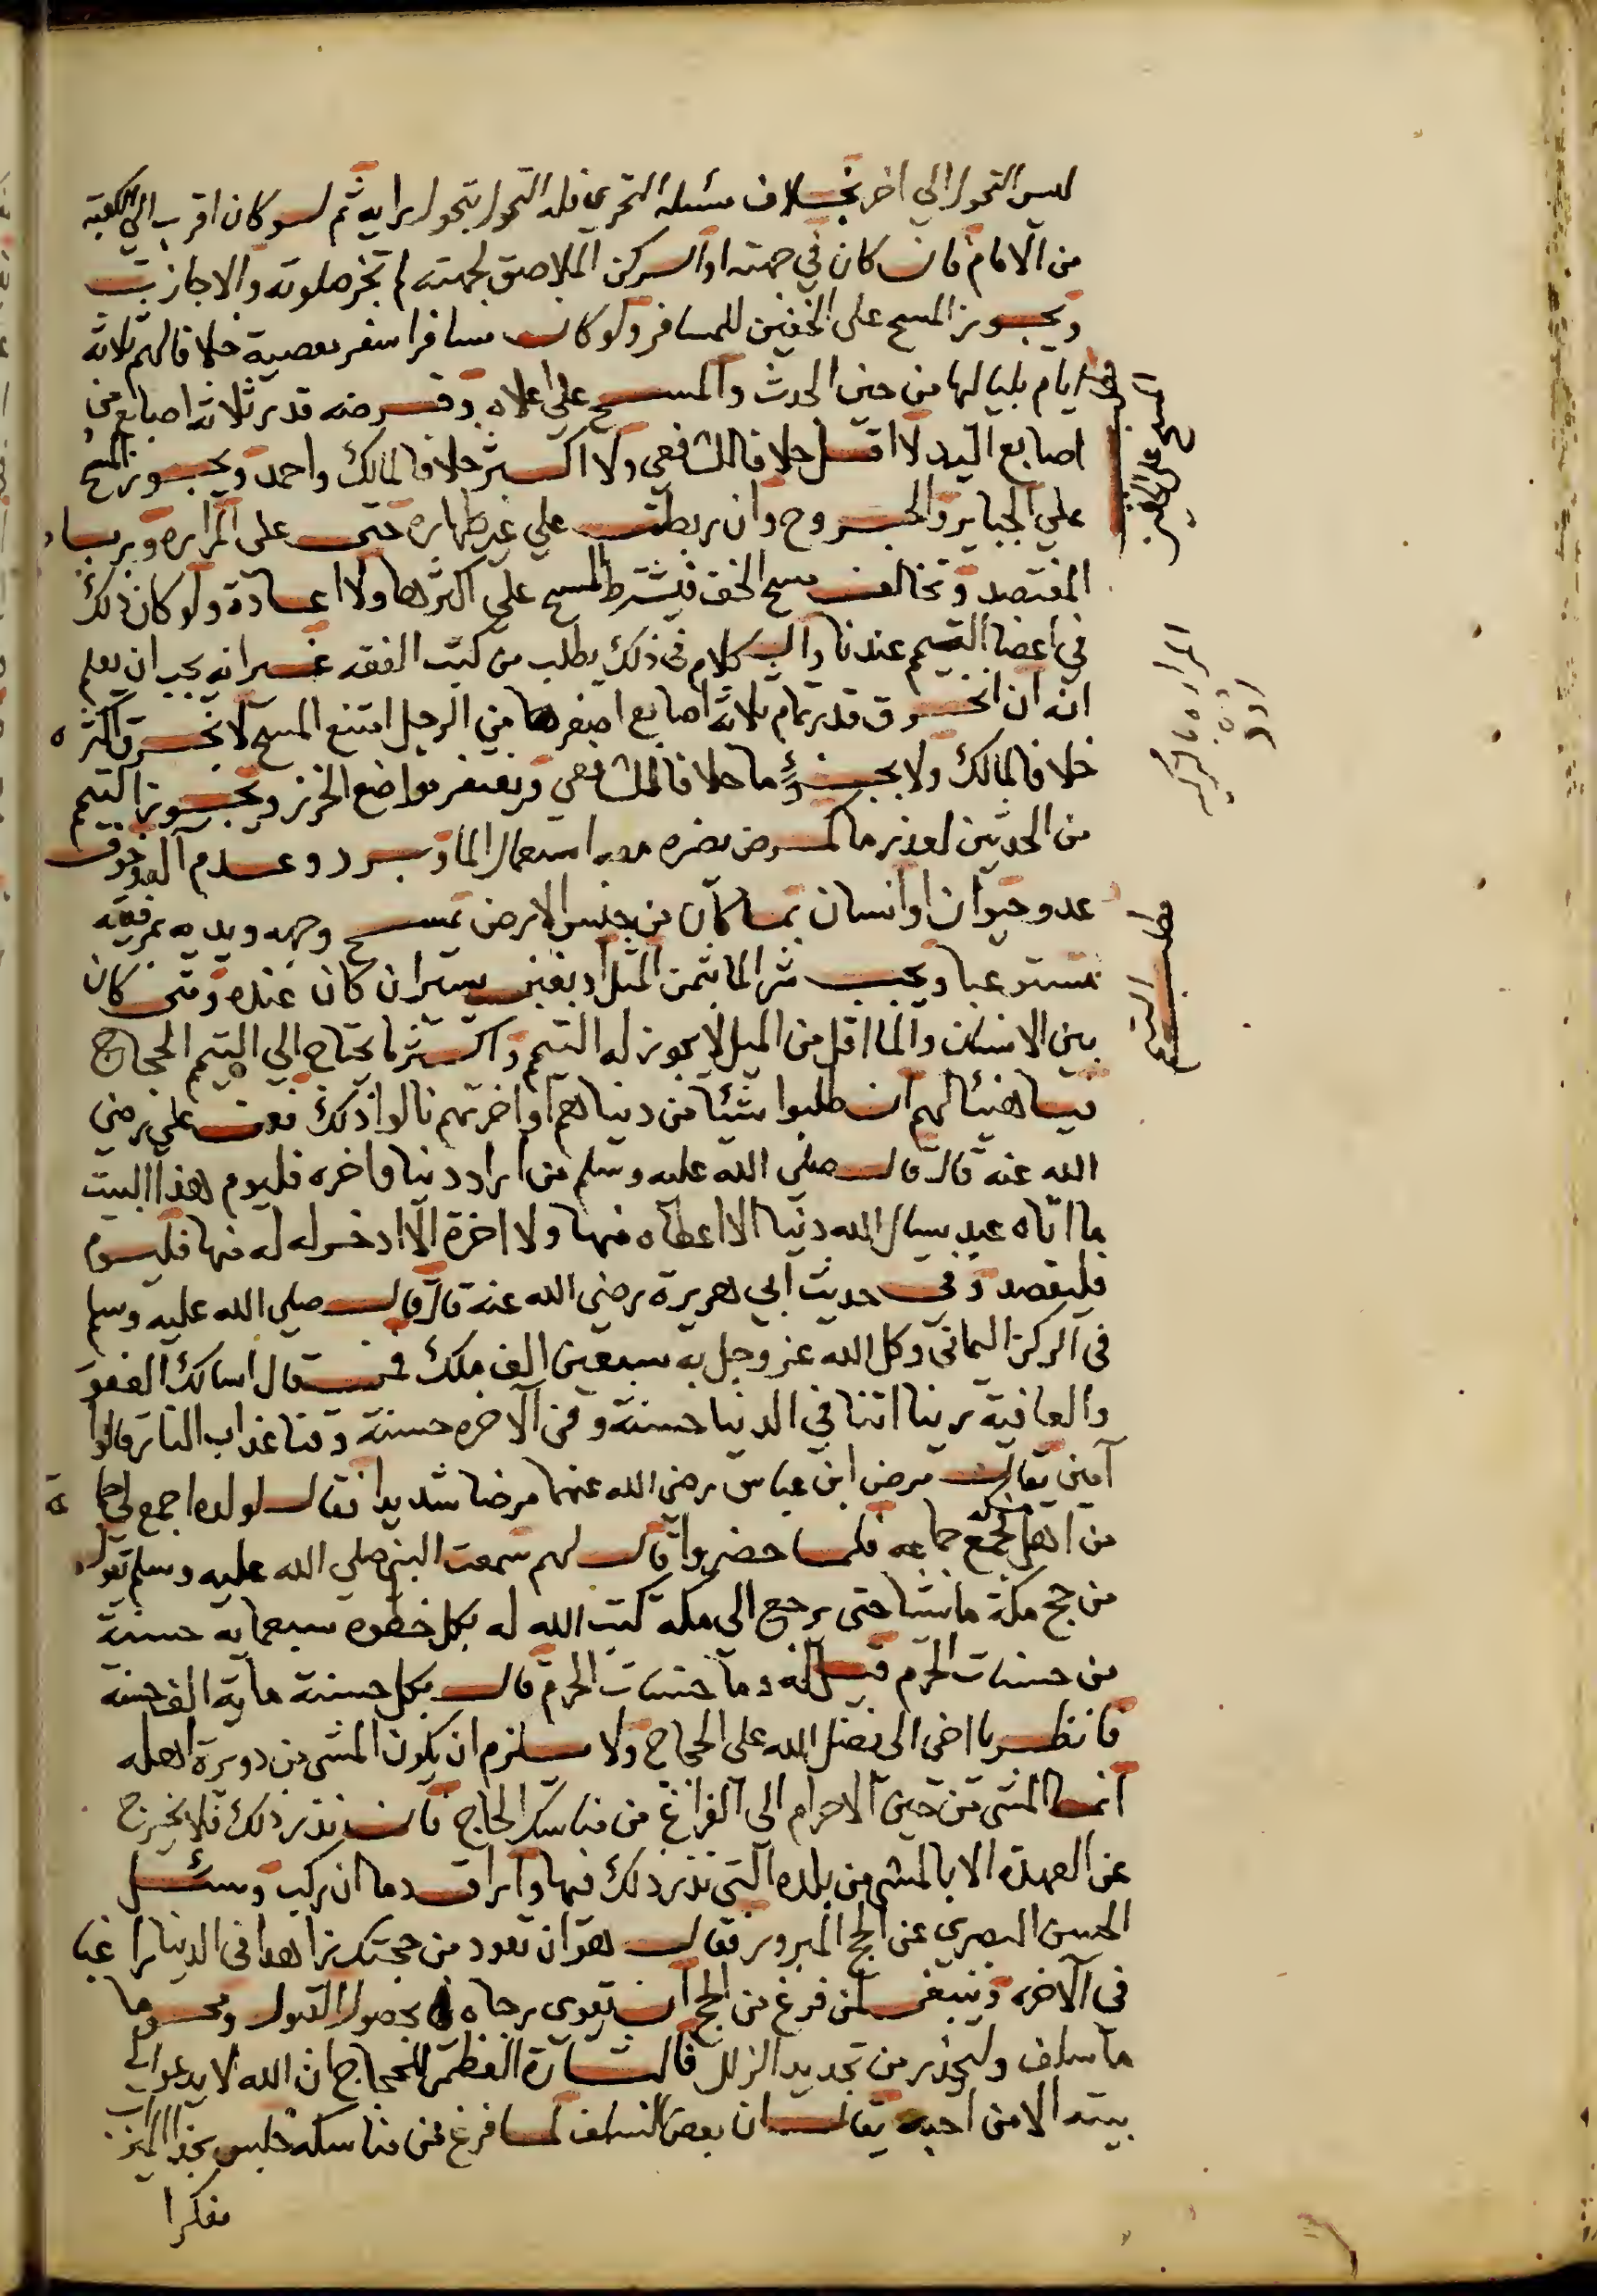 ليس التحول الي اخر بخلاف مسئله التحري فله التحول بتحول رايه ثم لو كان اقرب الي الكعبه
من الامام فان كان في جهته او الركن الملاصق لجهته لم تجز صلوته والا جازت
ويجوز المسح على الخفين للمسافر ولو كان مسافرا سفر معصية خلافا لهم ثلاثه
ايام بلياليها من حين الحدث والمسح علي اعلاه وفرضه قدر ثلاثه اصابع من
اصابع اليد لا اقل خلافا للشافعي ولا اكثر خلافا لمالك واحمد ويجوز المسح
علي الجباير والجروح وان ربطت علي غير طهاره حتى على المراره ورباط
المفتصد وتخالف مسح الخف فيشترط المسح علي اكثرها ولا اعادة ولو كان ذلك
في اعضا التيمم عندنا والكلام في ذلك يطلب من كتب الفقه غير انه يجب ان يعلم
انه ان انخرق قدر تمام ثلاثة اصابع اصغرها من الرجل امتنع المسح لا بخرق اكثره
خلافا لمالك ولا بجزء ما خلافا للشافعي ويغتفر مواضع الخرز ويجوز التيمم
من الحدثين لعذر ما كمرض يضره معه استعمال الما وبرد وعدم الما وخوف
عدو حيوان او انسان بما كان من جنس الارض يمسح وجهه ويديه بمرفقيه
مستوعبا ويجب شرا الما بثمن المثل او بغبن يسير ان كان عنده ومتى كان
بين الانسان والما اقل من الميل لا يجوز له التيمم واكثر ما يحتاج الي التيمم الحجاج
فيا هنيئا لهم ان طلبوا شيئا من دنياهم او اخرتهم نالوا ذلك فعن علي رضي
الله عنه قال قال صلى الله عليه وسلم من اراد دنيا واخره فليوم هذا البيت
ما اتاه عبد يسال الله دنيا الا اعطاه منها ولا اخرة الا ادخر له منها فليوم
فليقصد وفي حديث ابي هريرة رضي الله عنه قال قال صلى الله عليه وسلم
في الركن اليماني وكل الله عز وجل به سبعين الف ملك فمن قال اسالك العفو
والعافية ربنا اتنا في الدنيا حسنة وفي الآخره حسنة وقنا عذاب النار قالوا
آمين يقال مرض ابن عباس رضي الله عنهما مرضا شديدا فقال لولده اجمع لي جماعة
من اهل مكه فجمع جماعه فلما حضروا قال لهم سمعت النبي صلي الله عليه وسلم يقول
من حج مكة ماشيا حتى يرجع الى مكه كتب الله له بكل خطوه سبعمايه حسنة
من حسنات الحرم قيل له وما حسنات الحرم قال بكل حسنة ماية الف حسنة
فانظر يا اخي الى فضل الله على الحجاج ولا يلزم ان يكون المشي من دويرة اهله
انما المشي من حين الاحرام الى الفراغ من مناسك الحاج فان نذر ذلك فلا يخرج
عن العهدة الا بالمشي من بلده التي نذر ذلك فيها واراق دما ان ركب وسئل
الحسن البصري عن الحج المبرور فقال هو ان تعود من حجتك زاهدا في الدنيا راغبا
في الآخره وينبغي لمن فرغ من الحج ان يقوى رجاه بحصول القبول ومحو ما
ما سلف وليحذر من تجديد الزلل فالبشارة العظمى للحجاج ان الله لا يدعو الى
بيته الا من احبه يقال ان بعض السلف لما فرغ من مناسكه جلس بحذا الميزاب
مفكرا
في
المسح على الخفين
المراره ما
مطلب التيمم